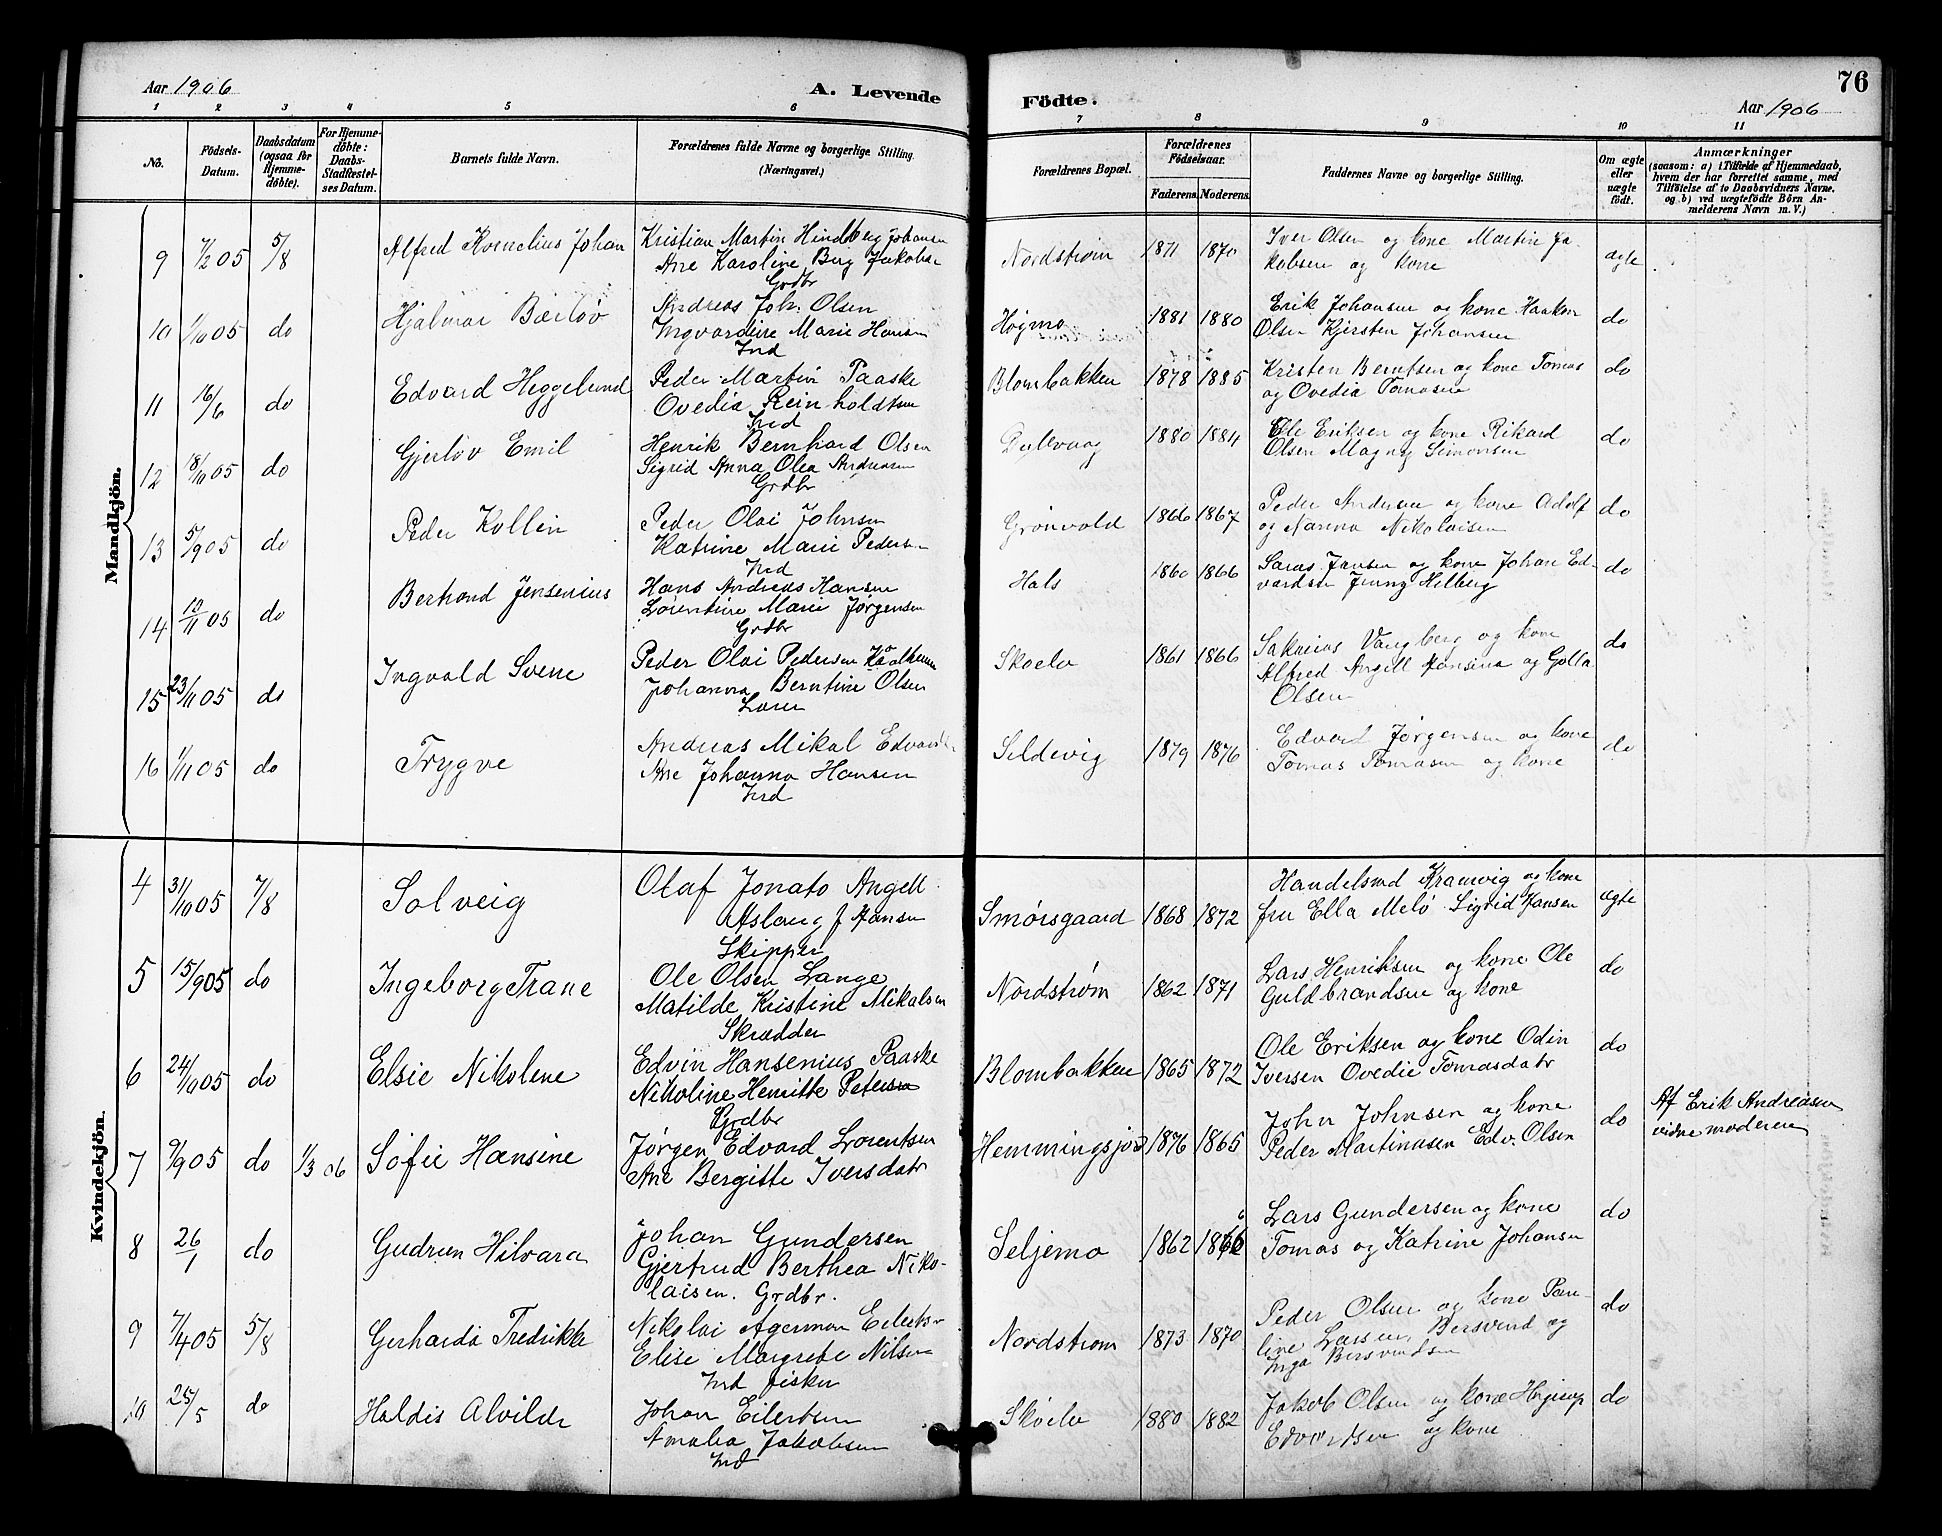 Aar 1906
A. Levende
Födte.
76
Aar 1906
1 2 3 4 5 6 7 8 9 10 11
No.
Födsels-
Datum.
Daabsdatum
(ogsaa for
Hjemme-
döbte).
For Hjemme-
döbte:
Daabs-
Stadfæstel-
ses Datum.
Barnets fulde Navn.
Forældrenes fulde Navne og borgerlige Stilling.
(Næringsvei.)
Forældrenes Bopæl.
Forældrenes
Födselsaar.
Faderens. Moderens.
Faddernes Navne og borgerlige Stilling.
Om ægte
eller
uægte
födt.
Anmærkninger
(saasom: a) i Tilfælde af Hjemmedaab,
hvem der har forrettet samme, med
Tilföielse af to Daabsvidners Navne.
og b) ved uægtefödte Börn An-
melderens Navn m. V.)
Mandkjön.
9 7/2 05 5/8 Alfred Kornelius Johan
Kristian Martin Hindberg Johansen
Ane Karoline Berg Jakobse
Grdbr
Nordstrøm 1871 1870
Iver Olsen og kone Martin Ja-
kobsen og kone
ægte
10 1/10 05 do Hjalmar Bærløv
Andreas Joh. Olsen
Ingvardine Marie Hansen
Ind
Høgmo 1881 1880
Erik Johansen og kone Haakon
Olsen Kjersten Johansen
do
11 16/6 do Edvard Heggelund
Peder Martin Paaske
Ovedia Reinholdtsen
Ind
Blombakken 1878 1885
Kristen Berntsen og kone Tomas
og Ovedia Tomasen
do
12 18/10 05 do Gjerløv Emil
Henrik Bernhard Olsen
Sigrid Anna Olea Andreasen
Grdbr
1880 1884
Ole Eriksen og kone Rikard
Olsen Magny Simonsen
do
13 5/9 05 do Peder Kollin
Peder Olai Johnsen
Katrine Marie Peders
Ind
Grönvold 1866 1867
Peder Andersen og kone Adolf
og Nanna Nikolaisen
do
14 10/11 05 do Berhard Jensenius
Hans Andreas Hansen
Lorentine Marie Jørgensen
Grdbr
Hals 1860 1866
Jansen og kone Johan Ed-
vardsen Jenny Hilberg
do
15 23/11 05 do Ingvald Svene
Peder Olai Pedersen
Johanna Berntine Olsen
Skoelv 1861 1866
Sakarias Vangberg og kone
Alfred Angell Hansina og Golla
Olsen
do
16 1/11 05 do Trygve
Andreas Mikal Edvards
Ane Johanna Hansen
Ind
Sildevig 1879 1876
Edvard Jørgensen og kone
Tomas Tomasen og kone
do
Kvindekjön.
4 31/10 05 7/8 Solveig
Olaf Jonato Angell
Aslaug J Hansen
Skipper
Smörsgaard 1868 1872
Handelsmd Kræmvig og kone
fru Ella Melö Sigrid Hansen
ægte
5 15/9 05 do Ingeborg Trane
Ole Olsen Lange
Matilde Kristine Mikalsen
Skrædder
Nordstrøm 1862 1871
Lars Henriksen og kone Ole
Guldbrandsen og kone
do
6 24/10 05 do Elsie Nikolene
Edvin Hansenius Paaske
Nikoline Henritte Petersen
Grdbr
Blombakken 1865 1872
Ole Eriksen og kone Odin
Iversen Ovedie Tomasdatr
do
7 9/9 05 do 1/3 06 Sofie Hansine
Jørgen Edvard Lorentsen
Ane Bergitte Iversdatr
Hemmingsjord 1876 1865
John Johnsen og kone
Peder Martinusen Edv. Olsen
do
Af Erik Andreasen
vidne moderen
8 26/1 do Gudrun Hilvara
Johan Gundersen
Gjertrud Berthea Niko-
laisen. Grdbr.
Seljemo 1862 1866
Lars Gundersen og kone
Tomas og Katrine Johansen
do
9 7/4 05 5/8 Gerharda Fredrikke
Nikolai Agerman Eilertse
Elise Margrete Nilsen
Ind fisker
Nordstrøm 1873 1870
Peder Olsen og kone Pau-
line Larsen, Bersvend og
Inga Bersvendsen
do
10 25/5 do Haldis Alvilde
Johan Eilertsen
Amalia Jakobsen
Ind
Skoelv 1880 1882
Jakob Olsen og kone
Edvardsen og kone
do